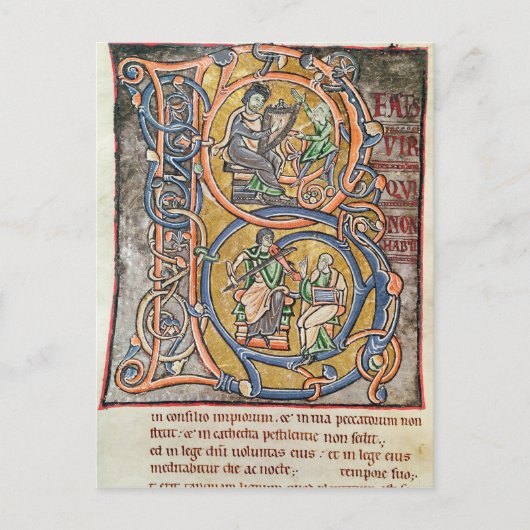 B EATS
VIR
QVI
NON
in consilio impiorum. & in uia peccatorum non
stetit: & in cathedra pestilentie non sedit:
Sed in lege dñi uoluntas eius: et in lege eius
meditabitur die ac nocte: tempore suo: